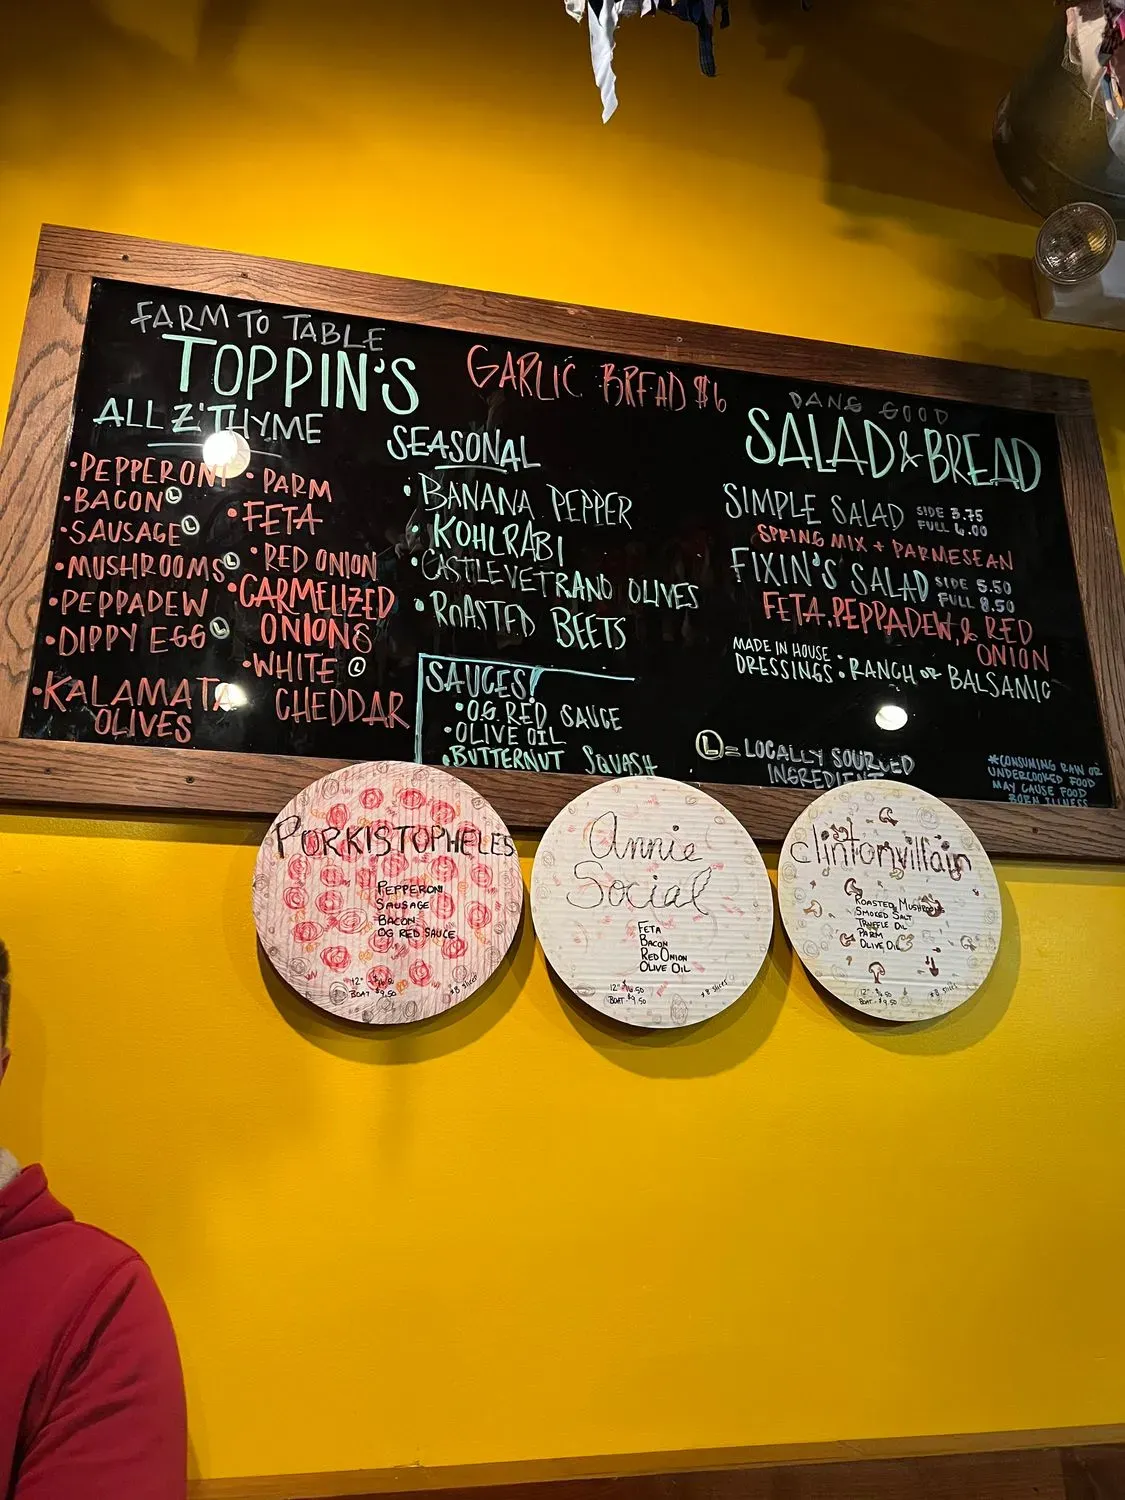 FARM TO TABLE
TOPPIN'S
ALL Z'THYME
• PEPPERONI
• BACON Ⓛ
• SAUSAGE Ⓛ
• MUSHROOMS Ⓛ
• PEPPADEW
• DIPPY EGG Ⓛ
• KALAMATA
OLIVES
• PARM
• FETA
• RED ONION
• CARMELIZED
ONIONS
• WHITE Ⓛ
CHEDDAR
GARLIC BREAD $6
SEASONAL
• BANANA PEPPER
• KOHLRABI
• CASTLEVETRANO OLIVES
• ROASTED BEETS
SAUCES!
• O.G. RED SAUCE
• OLIVE OIL
• BUTTERNUT SQUASH
DANG GOOD
SALAD & BREAD
SIMPLE SALAD SIDE 3.75
FULL 6.00
SPRING MIX + PARMESEAN
FIXIN'S SALAD SIDE 5.50
FULL 8.50
FETA, PEPPADEW, & RED
ONION
MADE IN HOUSE
DRESSINGS: RANCH OR BALSAMIC
Ⓛ = LOCALLY SOURCED
INGREDIENT
*CONSUMING RAW OR
UNDERCOOKED FOOD
MAY CAUSE FOOD
BORN ILLNESS
PORKISTOPHELES
PEPPERONI
SAUSAGE
BACON
OG RED SAUCE
12" $16.50
BOAT $9.50
* 8 slices
Annie
Social
FETA
BACON
RED ONION
OLIVE OIL
12" $16.50
BOAT $9.50
* 8 slices
clintonvillain
ROASTED MUSHROOMS
SMOKED SALT
TRUFFLE OIL
PARM
OLIVE OIL
12" $16.50
BOAT $9.50
* 8 slices